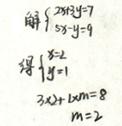 解{2x+3y=7
5x-y=9
得{x=2
y=1
3×2+1×m=8
m=2